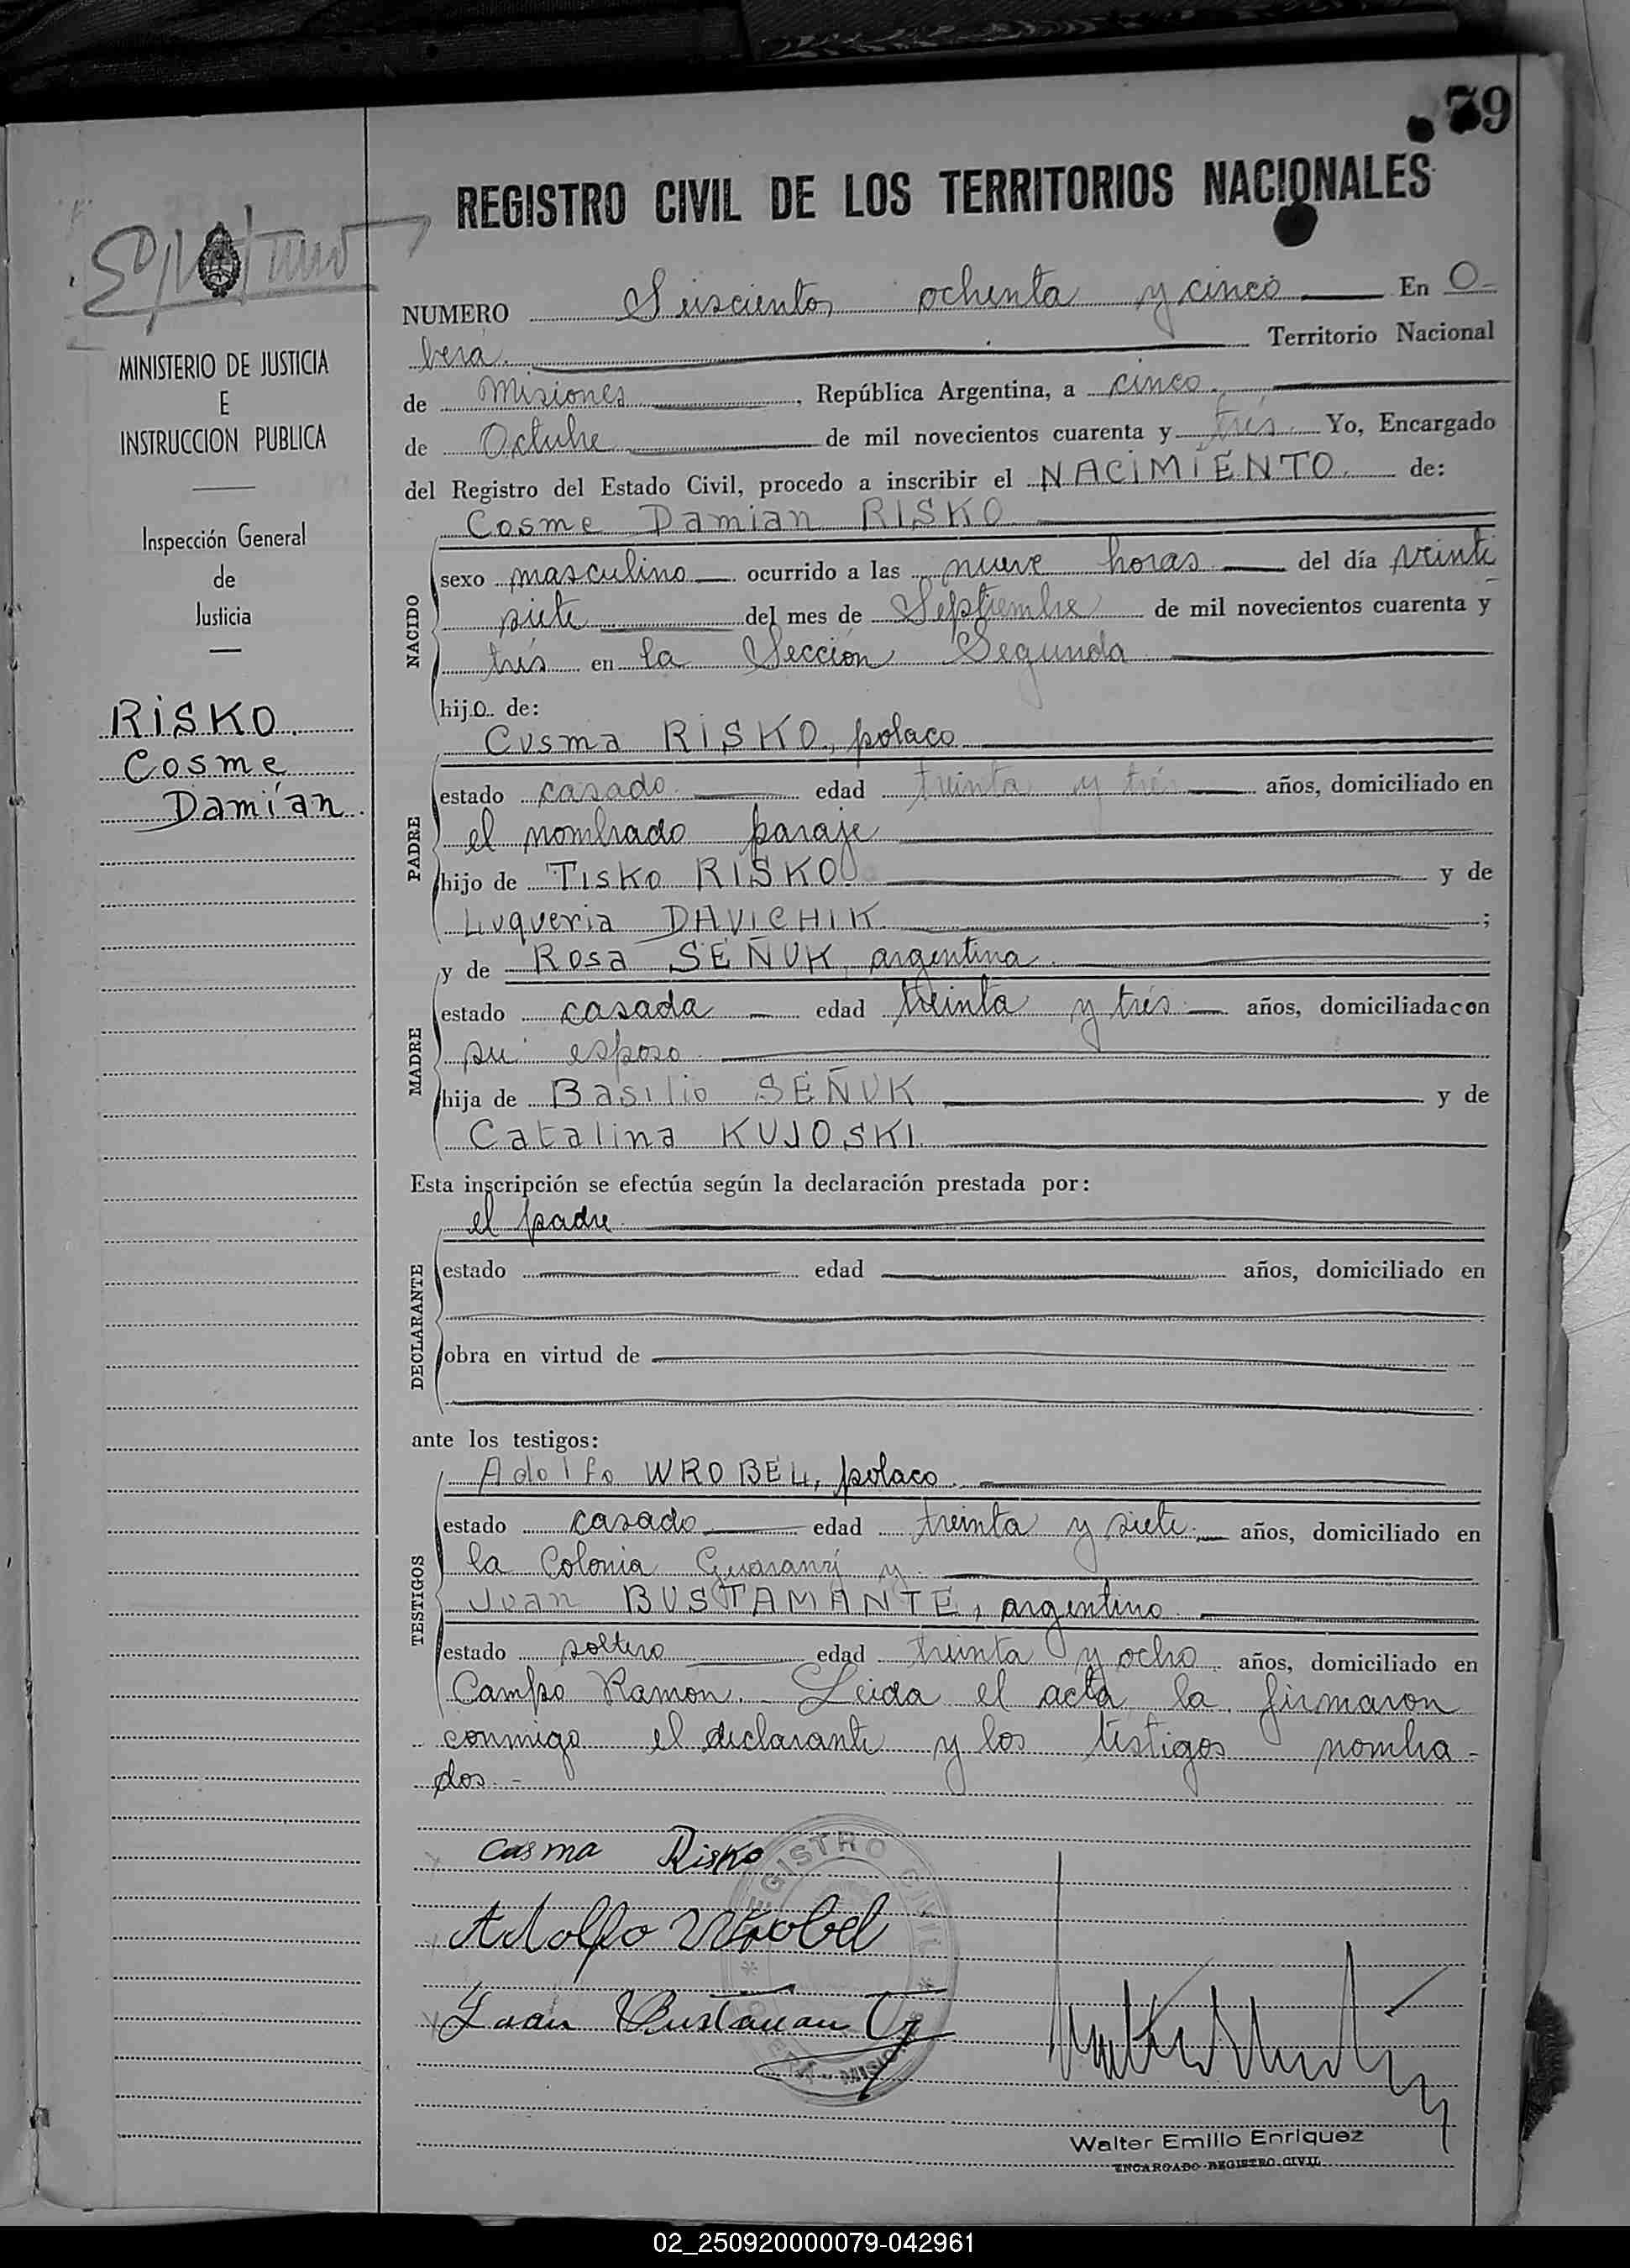 79
REGISTRO CIVIL DE LOS TERRITORIOS NACIONALES
MINISTERIO DE JUSTICIA
E
INSTRUCCION PUBLICA
Inspección General
de
Justicia
RISKO
Cosme
Damían
NUMERO Seiscientos ochenta y cinco En O-
bera. Territorio Nacional
de Misiones, República Argentina, a cinco
de Octubre de mil novecientos cuarenta y trés Yo, Encargado
del Registro del Estado Civil, procedo a inscribir el NACIMIENTO de:
Cosme Damian RISKO
NACIDO
sexo masculino ocurrido a las nueve horas del día veinti
siete del mes de Septiembre de mil novecientos cuarenta y
trés en la Sección Segunda
hijo de:
PADRE
Cusma RISKO, polaco
estado casado edad treinta y trés años, domiciliado en
el nombrado paraje
hijo de Tisko RISKO y de
Luqueria DAVICHIK ;
MADRE
y de Rosa SEÑUK, argentina
estado casada edad treinta y trés años, domiciliada con
su esposo
hija de Basilio SEÑUK y de
Catalina KUJOSKI
Esta inscripción se efectúa según la declaración prestada por:
DECLARANTE
el padre
estado edad años, domiciliado en
obra en virtud de
ante los testigos:
TESTIGOS
Adolfo WROBEL, polaco.
estado casado edad treinta y siete años, domiciliado en
la Colonia Guaraní y
Juan BUSTAMANTE, argentino
estado soltero edad treinta y ocho años, domiciliado en
Campo Ramon. Leida el acta la firmaron
conmigo el declarante y los testigos nombra-
dos.-
Cusma Risko
REGISTRO CIVIL
Adolfo Wrobel
Juan Bustamante
Walter Emilio Enriquez
ENCARGADO REGISTRO CIVIL
02_250920000079-042961